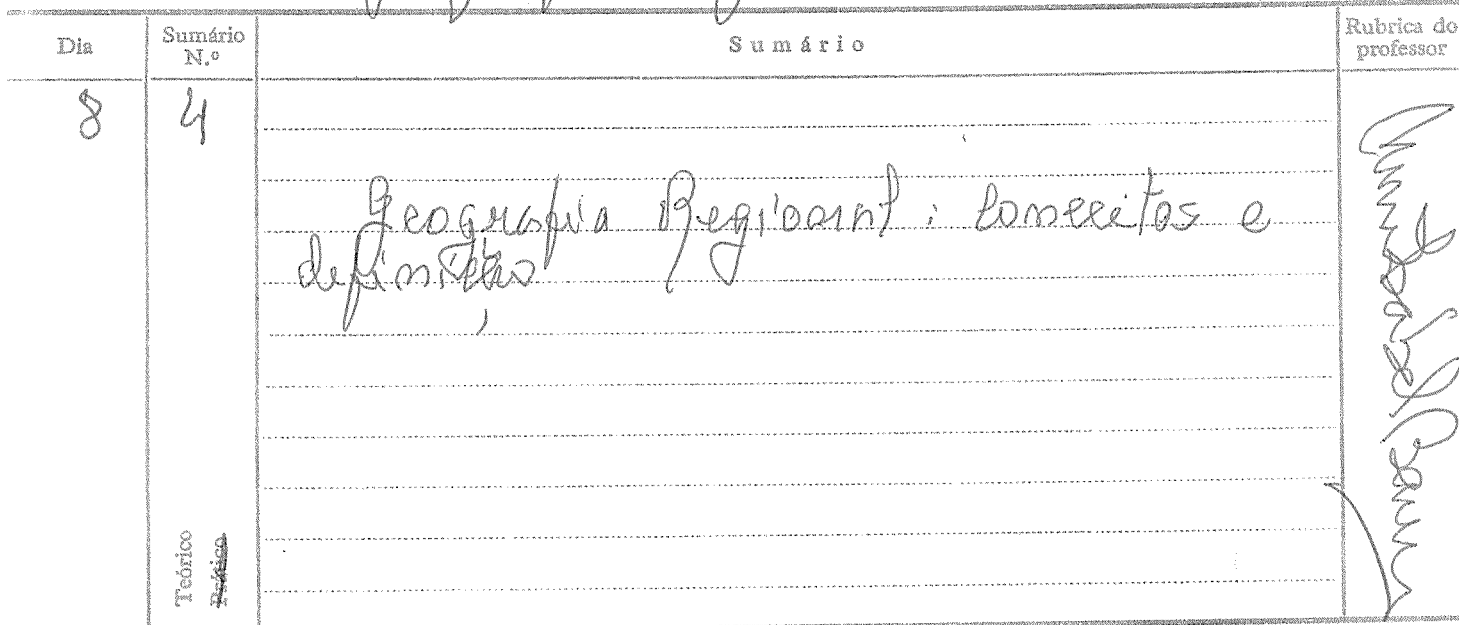 Dia
Sumário N.º
Sumário
Rubrica do professor
8
4
Geografia Regional: Conceitos e
definição
Teórico
Prático